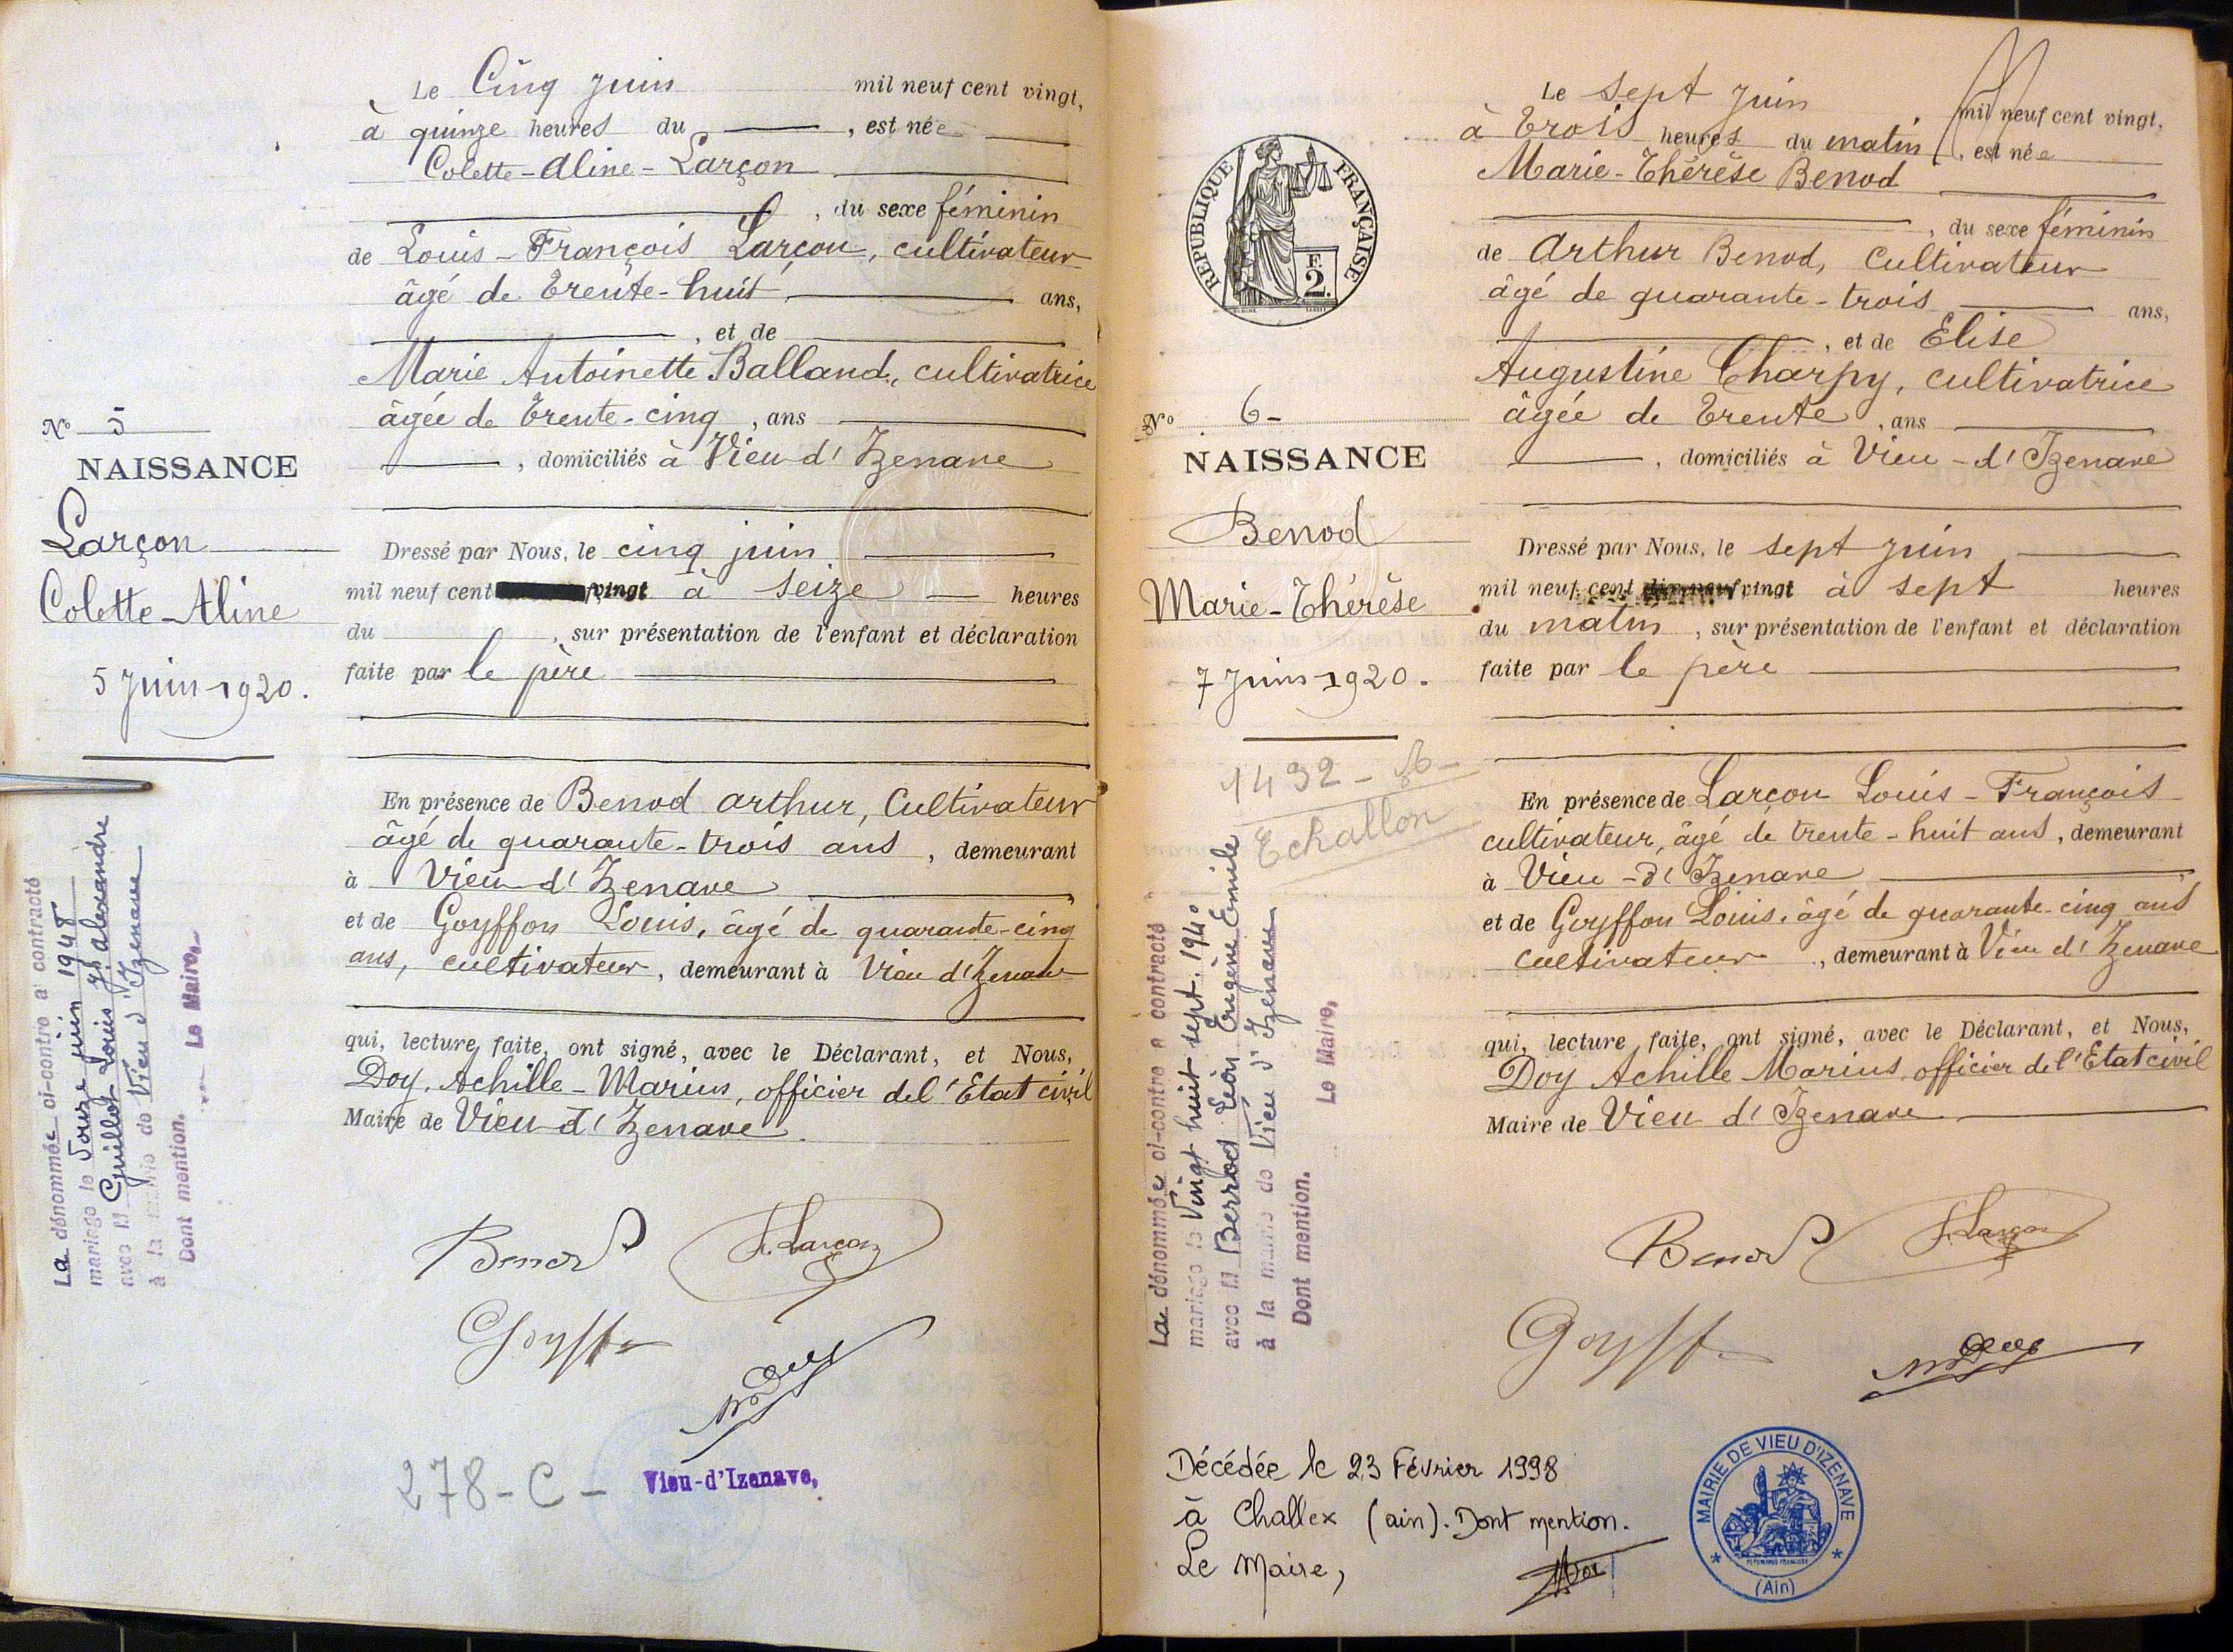 Le Cinq Juin mil neuf cent vingt,
à quinze heures du , est née
Colette-Aline-Larçon
, du sexe féminin
de Louis-François Larçon, cultivateur
âgé de Trente-huit ans,
, et de
Marie Antoinette Balland, cultivatrice
âgée de Trente-cinq , ans
, domiciliés à Vieu d'Izenave
Dressé par Nous, le cinq juin
mil neuf cent vingt à seize heures
du , sur présentation de l'enfant et déclaration
faite par le père
En présence de Benod Arthur, Cultivateur
âgé de quarante-trois ans , demeurant
à Vieu d'Izenave
et de Goyffon Louis, âgé de quarante-cinq
ans, cultivateur, demeurant à Vieu d'Izenave
qui, lecture faite, ont signé, avec le Déclarant, et Nous,
Doy, Achille-Marius, officier de l'Etat civil
Maire de Vieu d'Izenave
Benod F. Larçon
Goyff
278-C-
Vieu-d'Izenave,
No 5
NAISSANCE
Larçon
Colette-Aline
5 Juin 1920.
La dénommée ci-contre a contracté
mariage le douze juin 1948
avec M Guillot Louis Alexandre
à la mairie de Vieu d'Izenave
Dont mention. Le Maire,
Le Sept Juin mil neuf cent vingt,
à Trois heures du matin , est née
Marie-Thérèse Benod
, du sexe féminin
de Arthur Benod, Cultivateur
âgé de quarante-trois ans,
, et de Elise
Augustine Charpy, cultivatrice
âgée de Trente , ans
, domiciliés à Vieu-d'Izenave
Dressé par Nous, le sept juin
mil neuf cent dix-neuf vingt à sept heures
du matin , sur présentation de l'enfant et déclaration
faite par le père
En présence de Larçon Louis-François
cultivateur, âgé de trente-huit ans, demeurant
à Vieu-d'Izenave
et de Goyffon Louis, âgé de quarante-cinq ans
cultivateur , demeurant à Vieu d'Izenave
qui, lecture faite, ont signé, avec le Déclarant, et Nous,
Doy Achille Marius, officier de l'Etat civil
Maire de Vieu d'Izenave
Benod F. Larçon
Goyff
RÉPUBLIQUE FRANÇAISE
F.
2.
No 6-
NAISSANCE
Benod
Marie-Thérèse
7 Juin 1920.
1492-
Echallon
La dénommée ci-contre a contracté
mariage le Vingt huit sept. 1940
avec M Berrod Léon Eugène Emile
à la mairie de Vieu d'Izenave
Dont mention. Le Maire,
Décédée le 23 Février 1998
à Challex (ain). Dont mention.
Le Maire,
MAIRIE DE VIEU D'IZENAVE
(Ain)